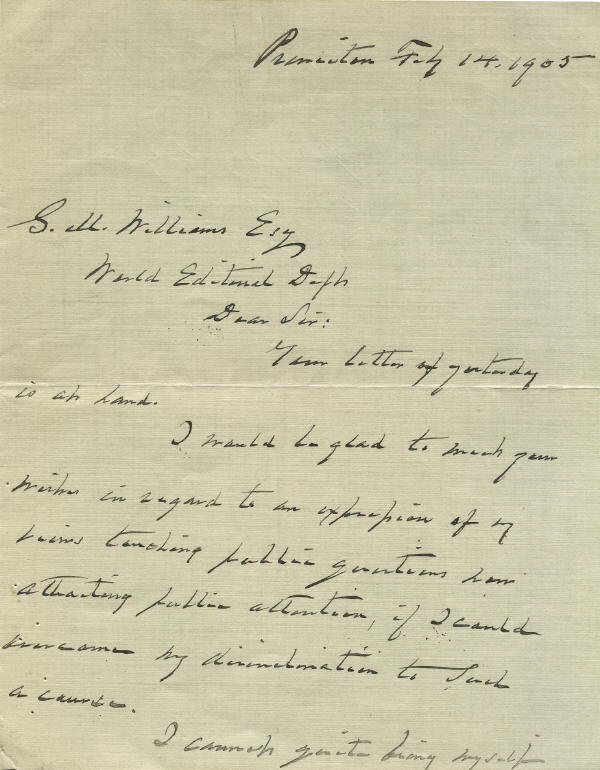 Princeton Feb 14, 1905
S. M. Williams Esq
World Editorial Dept
Dear Sir:
Your letter of yesterday
is at hand.
I would be glad to meet your
wishes in regard to an expression of my
views touching public questions now
attracting public attention, if I could
overcome my disinclination to such
a course.
I cannot quite bring myself